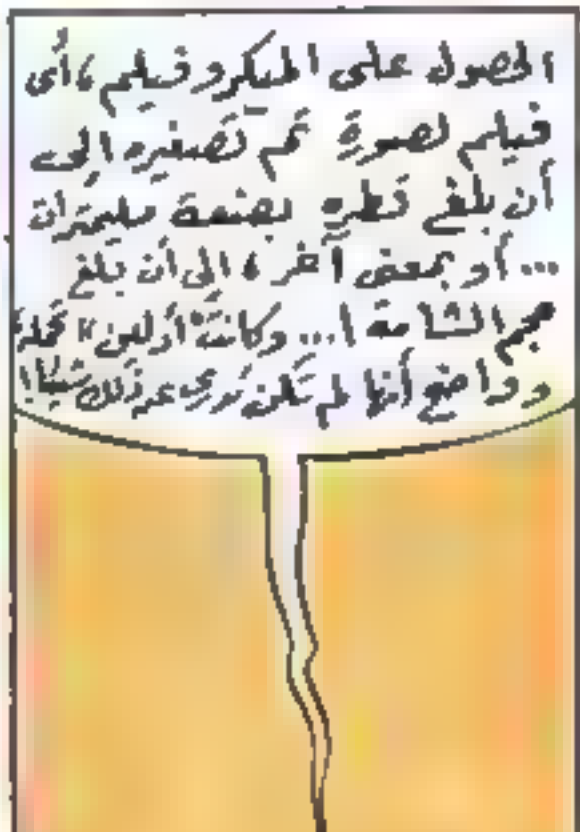 الحصول على الميكروفيلم ، أى
فيلم لصورة تم تصغيره إلى
أن بلغ قطره بضعة مليمترات
... أو بمعنى آخر ، الى أن بلغ
حجم الشامة !... وكانت "أدلين" تحمله
وواضح أنها لم تكن تدرى عن ذلك شيئا !